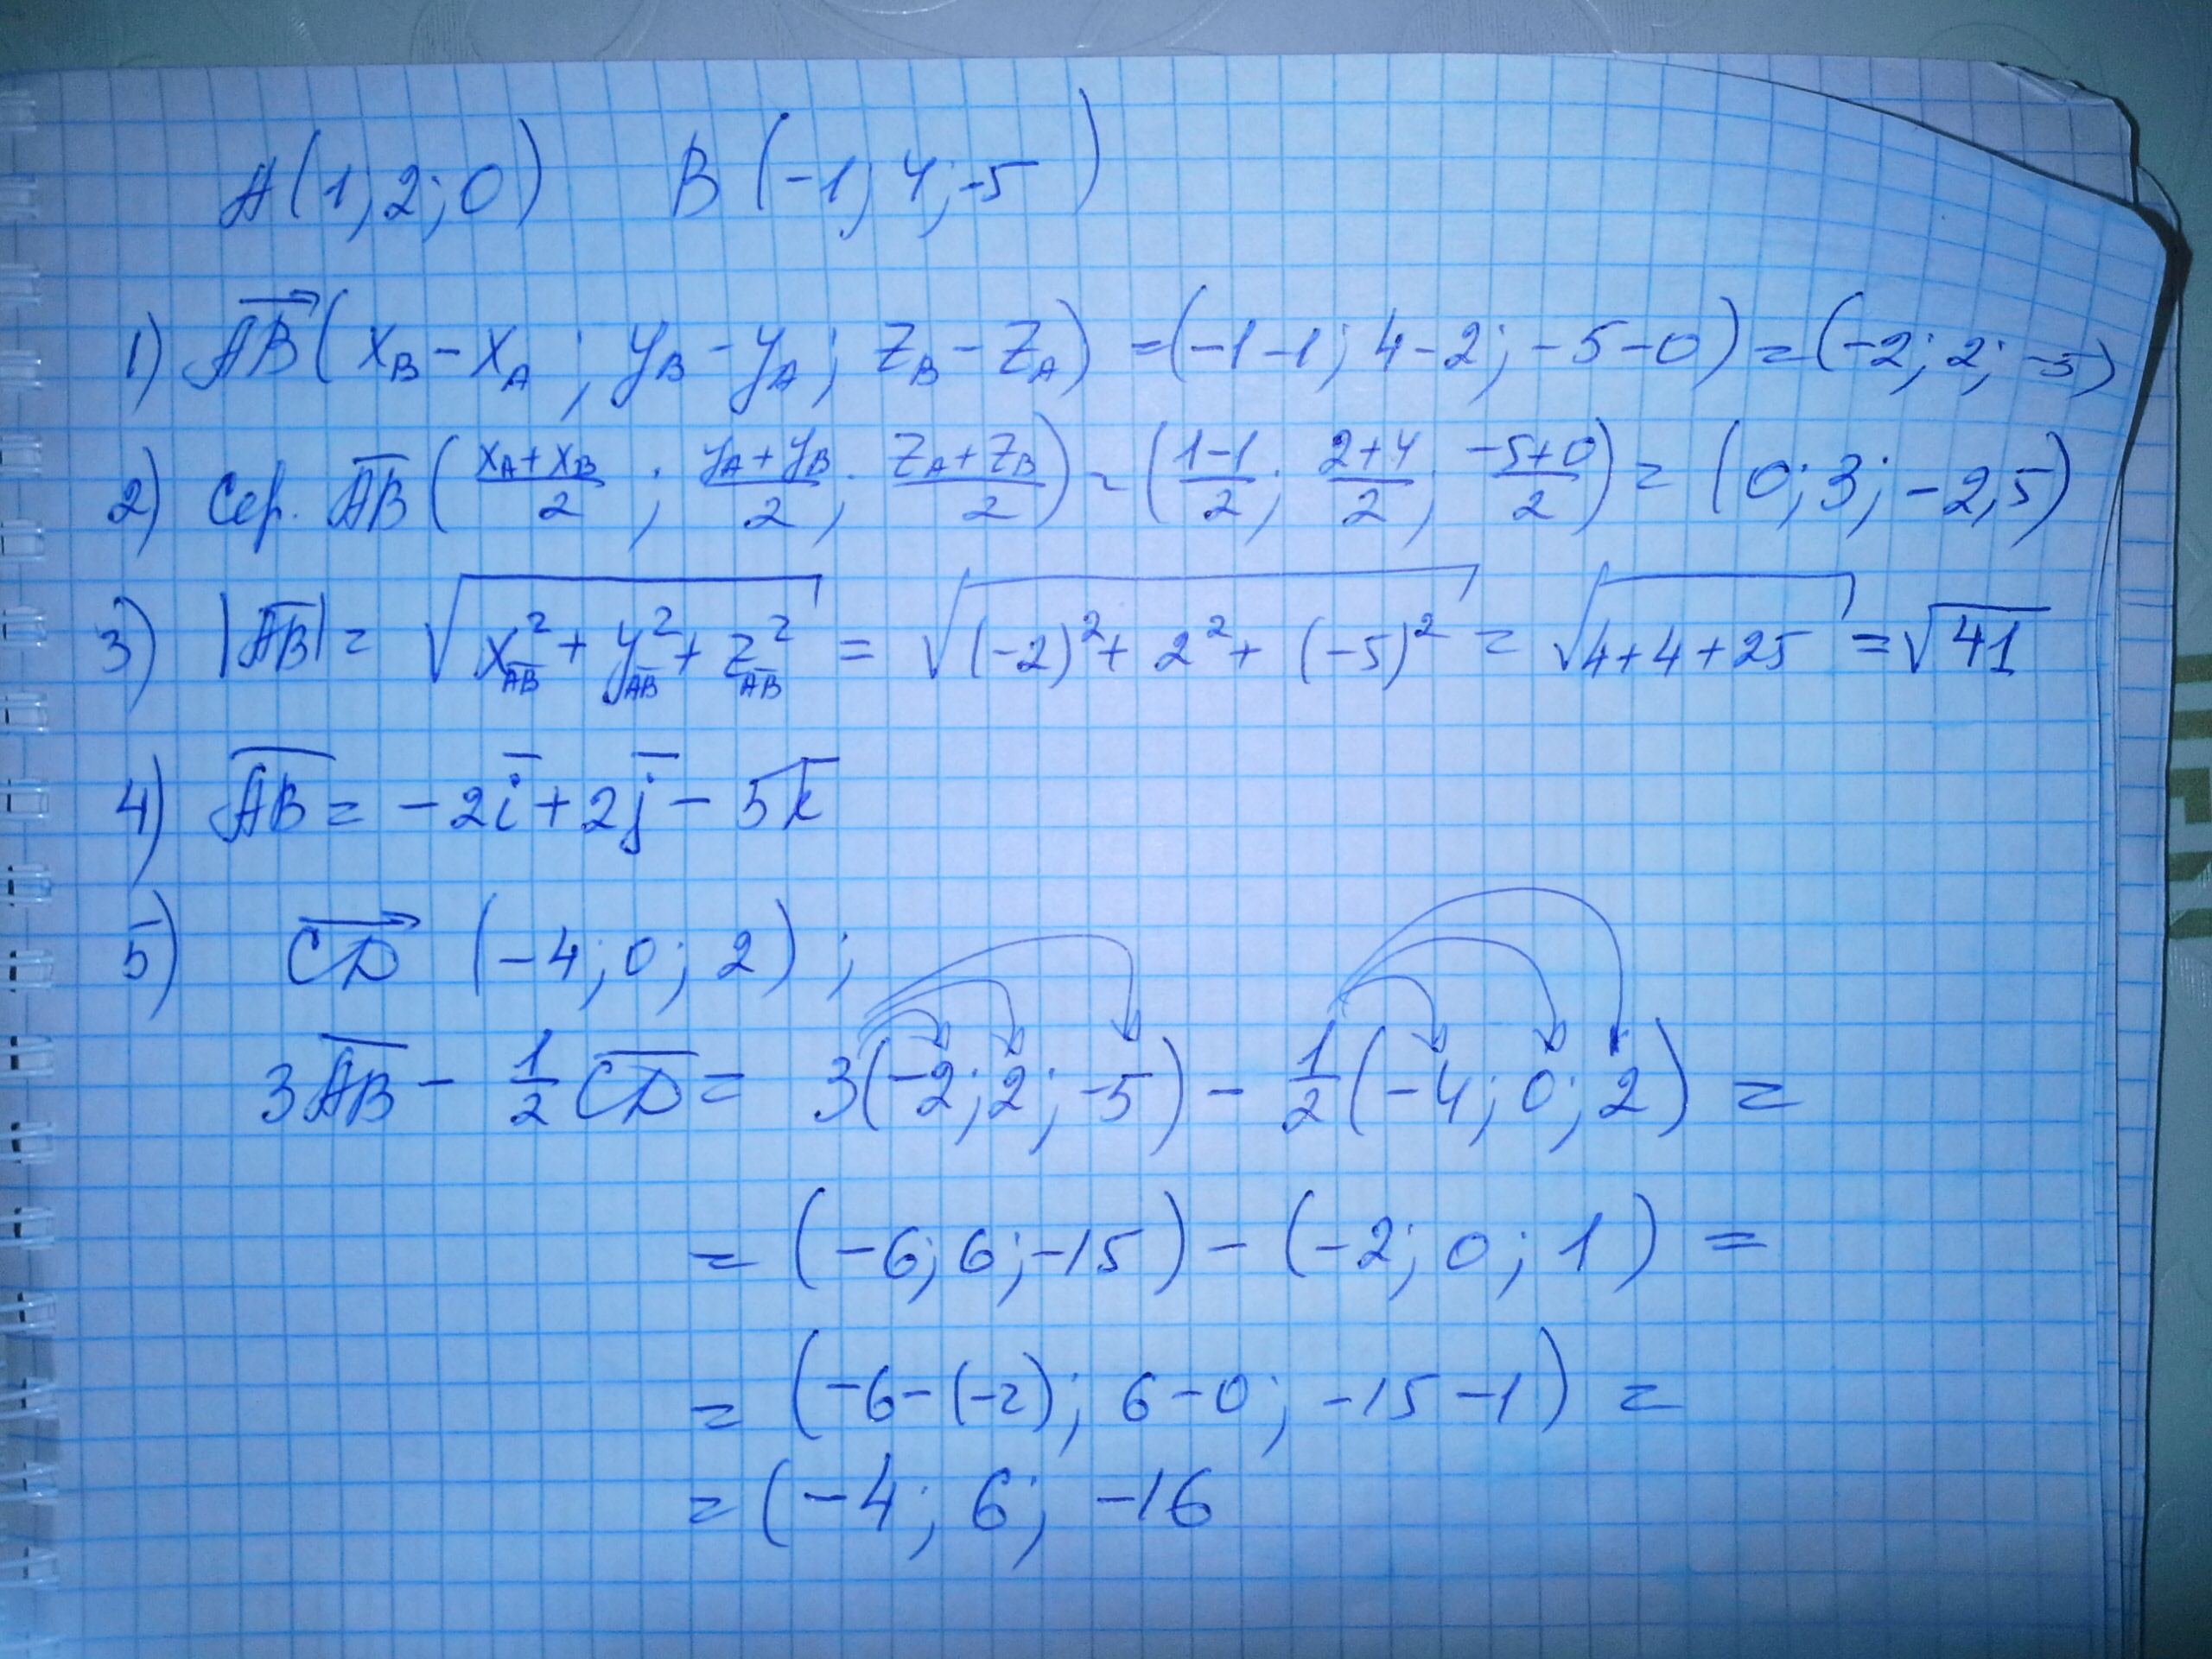 A(1;2;0) B(-1;4;-5)
1) \overrightarrow{AB}(x_B-x_A; y_B-y_A; z_B-z_A) =(-1-1; 4-2; -5-0)=(-2; 2; -5)
2) Сер. \overline{AB}(\frac{x_A+x_B}{2}; \frac{y_A+y_B}{2}; \frac{z_A+z_B}{2})=(\frac{1-1}{2}; \frac{2+4}{2}; \frac{-5+0}{2})=(0; 3; -2,5)
3) |\overline{AB}|=\sqrt{x_{\overline{AB}}^2+y_{\overline{AB}}^2+z_{\overline{AB}}^2}=\sqrt{(-2)^2+2^2+(-5)^2}=\sqrt{4+4+25}=\sqrt{41}
4) \overline{AB}=-2\overline{i}+2\overline{j}-5\overline{k}
5) \overrightarrow{CD} (-4; 0; 2);
3\overline{AB}-\frac{1}{2}\overline{CD}=3(-2; 2; -5)-\frac{1}{2}(-4; 0; 2)=
=(-6; 6; -15)-(-2; 0; 1)=
=(-6-(-2); 6-0; -15-1)=
=(-4; 6; -16